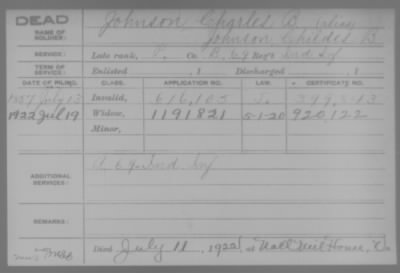 DEAD
NAME OF SOLDIER: Johnson Charles B (alias)
Johnson Childes B
SERVICE: Late rank, Co. B, 69 Reg't Ind Inf
TERM OF SERVICE: Enlisted , 1 Discharged , 1
DATE OF FILING. CLASS. APPLICATION NO. LAW. CERTIFICATE NO.
July 13 Invalid, 616,103
1922 Jul 19 Widow, 1191821 5-1-20 920,122
Minor,
ADDITIONAL SERVICES: B 69 Ind Inf
REMARKS:
Died July 11, 1922, at Natl Mil Home,